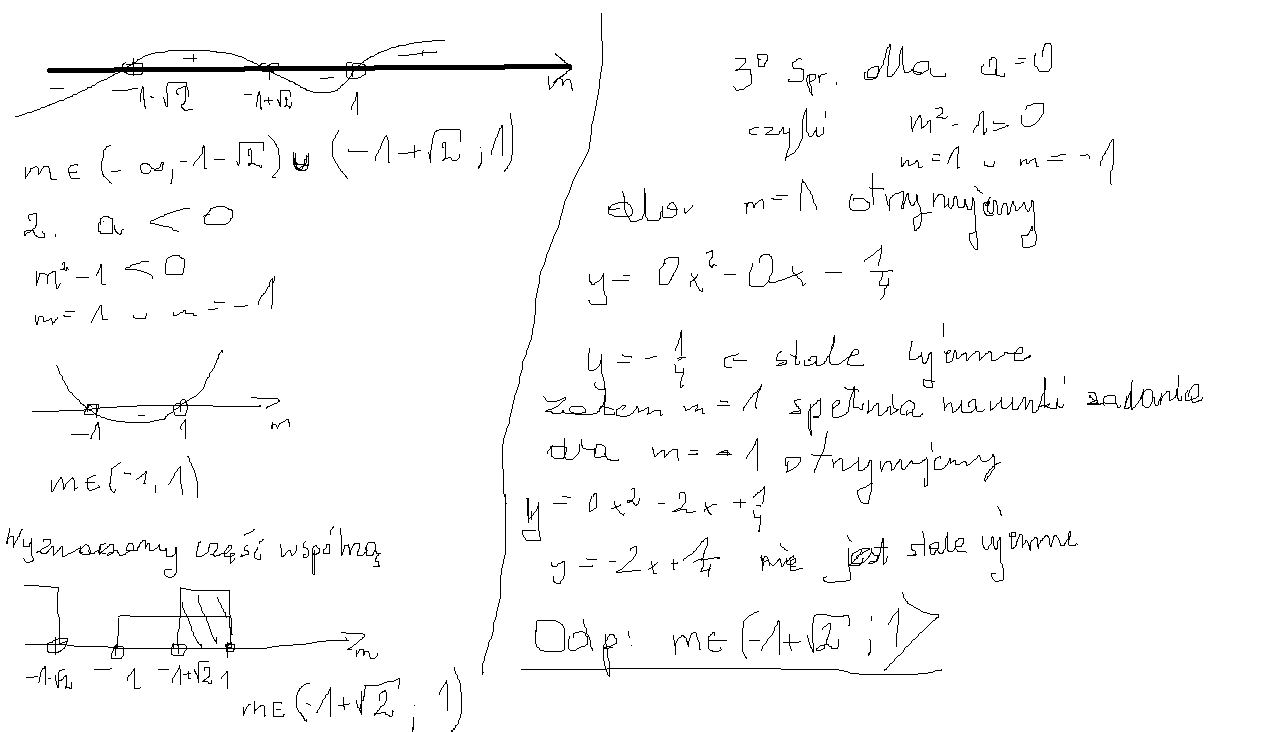 - + - +
-1-√2 -1+√2 1 m
m ∈ (-∞, -1-√2) ∪ (-1+√2 ; 1)
2. a < 0
m² - 1 < 0
m = 1 ∪ m = -1
-
-1 1 m
m ∈ (-1, 1)
Wyznaczamy część wspólną
-1-√2 -1 -1+√2 1 m
m ∈ (-1+√2 ; 1)
3° Spr. dla a = 0
czyli m² - 1 = 0
m = 1 ∪ m = -1
dla m = 1 otrzymujemy
y = 0x² - 0x - 1/4
y = - 1/4 ← stale ujemne
zatem m = 1 spełnia warunki zadania
dla m = -1 otrzymujemy
y = 0x² - 2x + 1/4
y = -2x + 1/4 nie jest stale ujemne
Odp: m ∈ (-1+√2 ; 1>